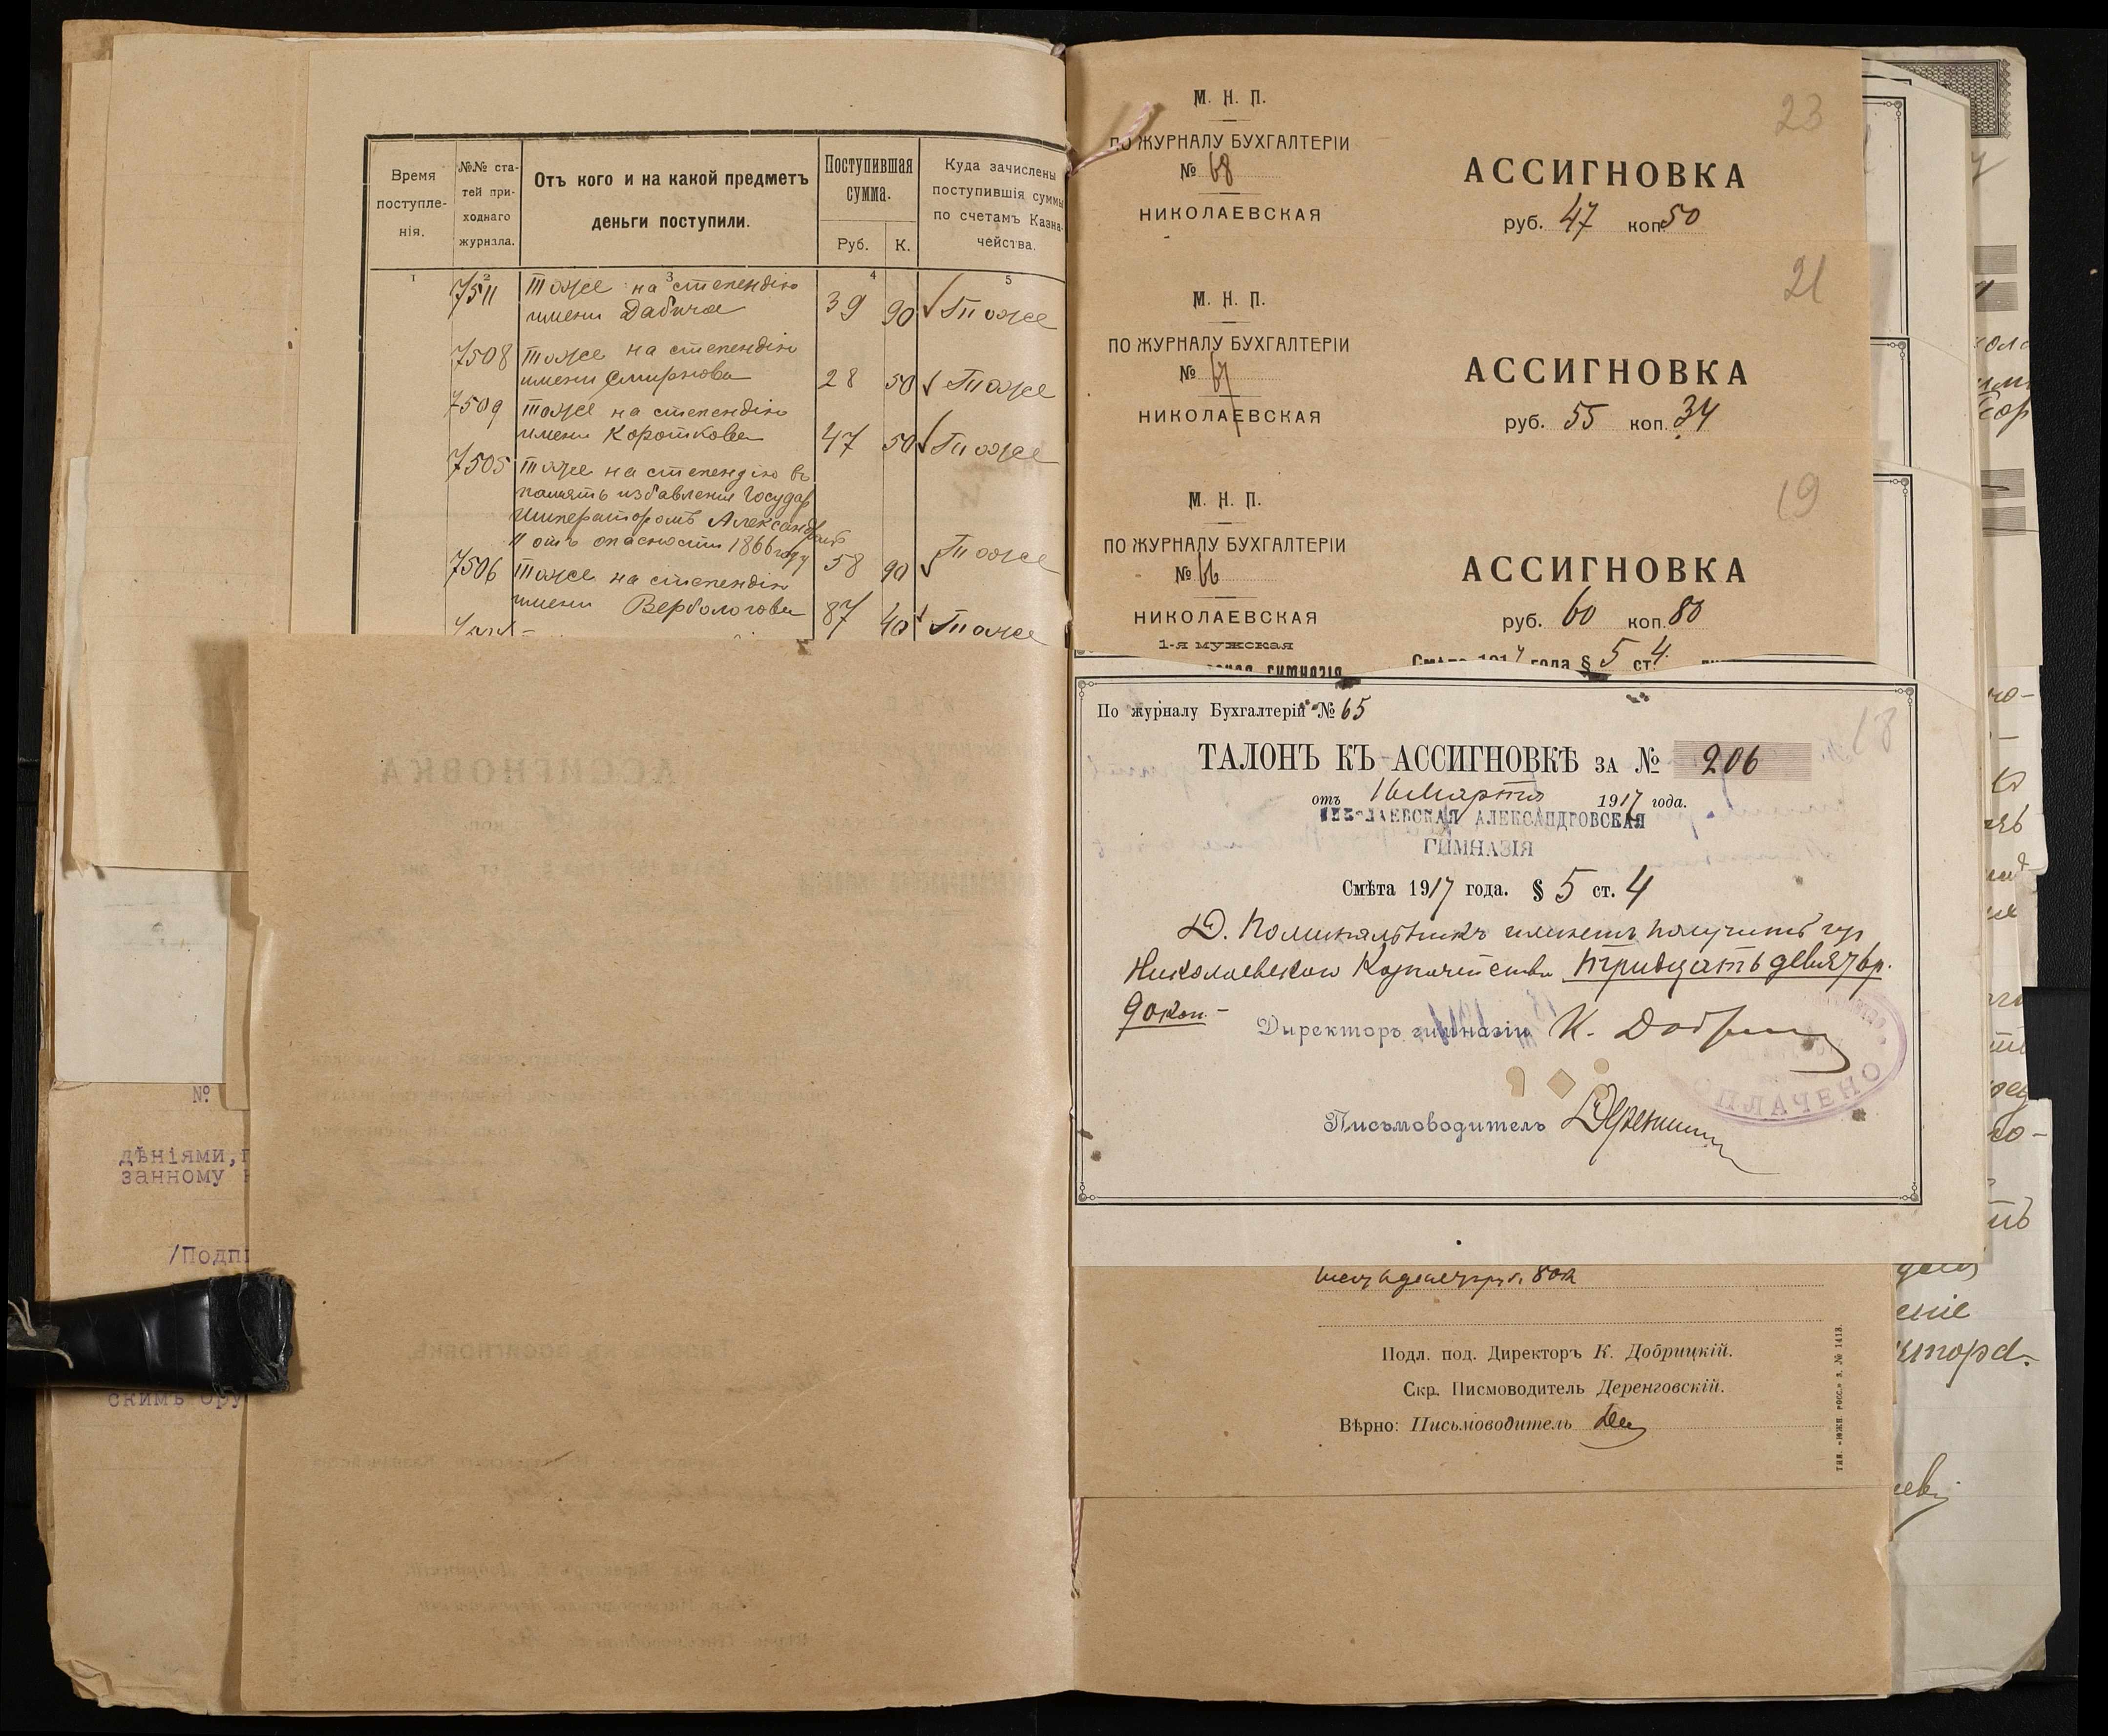 Время
поступле-
нія.
№№ ста-
тей при-
ходнаго
журнзла.
Отъ кого и на какой предметъ
деньги поступили.
Поступившая
сумма.
Руб. К.
Куда зачислены
поступившія суммы
по счетамъ Казна-
чейства.
1 2 3 4 5
7511 Тоже на стипендію
имени Дабича 39 90 Тоже
7508 Тоже на стипендію
имени Смирнова 28 50 Тоже
7509 Тоже на стипендію
имени Короткова 47 50 Тоже
7505 Тоже на стипендію въ
память избавленія Государ
Императоромъ Александромъ
II отъ опасности 1866 году 58 90 Тоже
7506 Тоже на стипендію
имени Вербологова 87 40 Тоже
№
дѣніями,
занному
/Подп
скимъ Ору
М. Н. П.
ПО ЖУРНАЛУ БУХГАЛТЕРІИ
№ 68
НИКОЛАЕВСКАЯ
23
АССИГНОВКА
руб. 47 коп. 50
М. Н. П.
ПО ЖУРНАЛУ БУХГАЛТЕРІИ
№ 67
НИКОЛАЕВСКАЯ
21
АССИГНОВКА
руб. 55 коп. 34
М. Н. П.
ПО ЖУРНАЛУ БУХГАЛТЕРІИ
№ 66
НИКОЛАЕВСКАЯ
1-я мужская
гимназія
19
АССИГНОВКА
руб. 60 коп. 80
Смѣта 1917 года § 5 ст. 4
По журналу Бухгалтеріи № 65
18
ТАЛОНЪ КЪ АССИГНОВКѢ ЗА № 206
отъ 16 Марта 1917 года.
НИКОЛАЕВСКАЯ АЛЕКСАНДРОВСКАЯ
ГИМНАЗІЯ
Смѣта 1917 года. § 5 ст. 4
имѣетъ получить изъ
Николаевскаго Казначейства тридцать девять р.
90 коп.
Директоръ гимназіи К. Добрицкій
ОПЛАЧЕНО
Письмоводитель
80 к
Подл. под. Директоръ К. Добрицкій.
Скр. Писмоводитель Деренговскій.
Вѣрно: Письмоводитель
ТИП. «ЮЖН. РОСС.» З. № 1413.